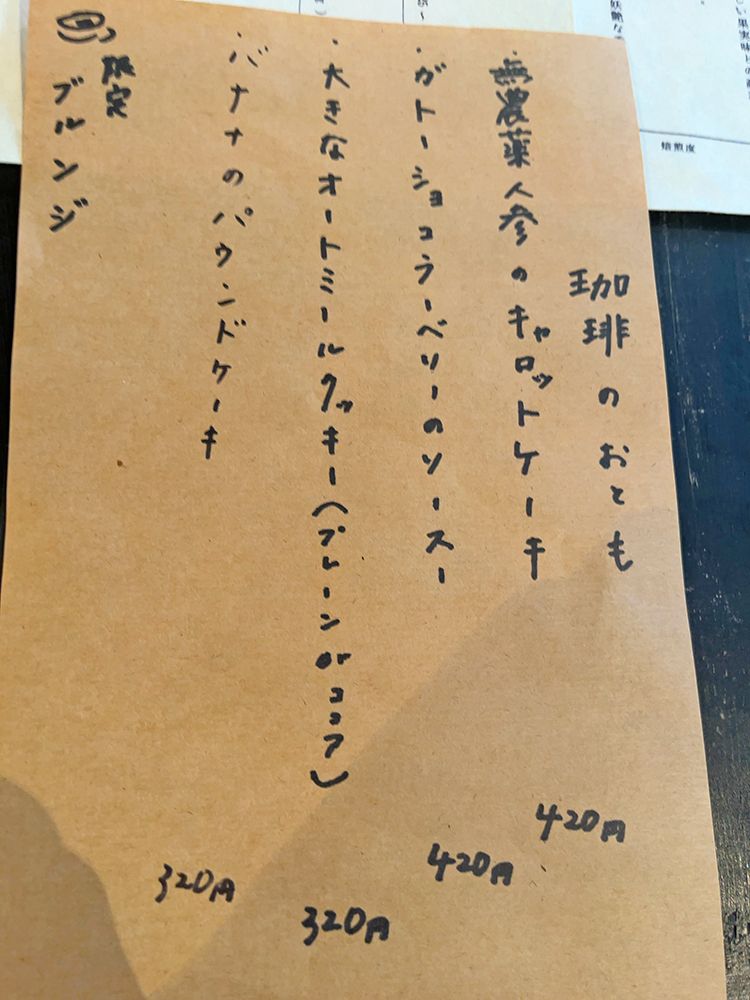 珈琲のおとも
・無農薬人参のキャロットケーキ 420円
・ガトーショコラーベリーのソースー 420円
・大きなオートミールクッキー(プレーン or ココア) 320円
・バナナのパウンドケーキ 320円
限定
ブルンジ
焙煎度